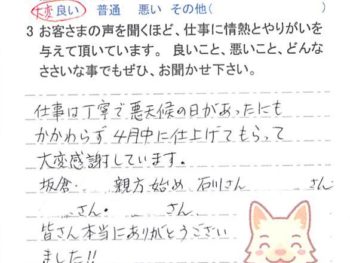 大変良い 普通 悪い その他( )
3 お客さまの声を聞くほど、仕事に情熱とやりがいを
与えて頂いています。 良いこと、悪いこと、どんな
ささいな事でもぜひ、お聞かせ下さい。
仕事は丁寧で悪天候の日があったにも
かかわらず 4月中に仕上げてもらって
大変感謝しています。
坂倉 親方始め 石川さん さん
さん・ さん
皆さん本当にありがとうござい
ました!!